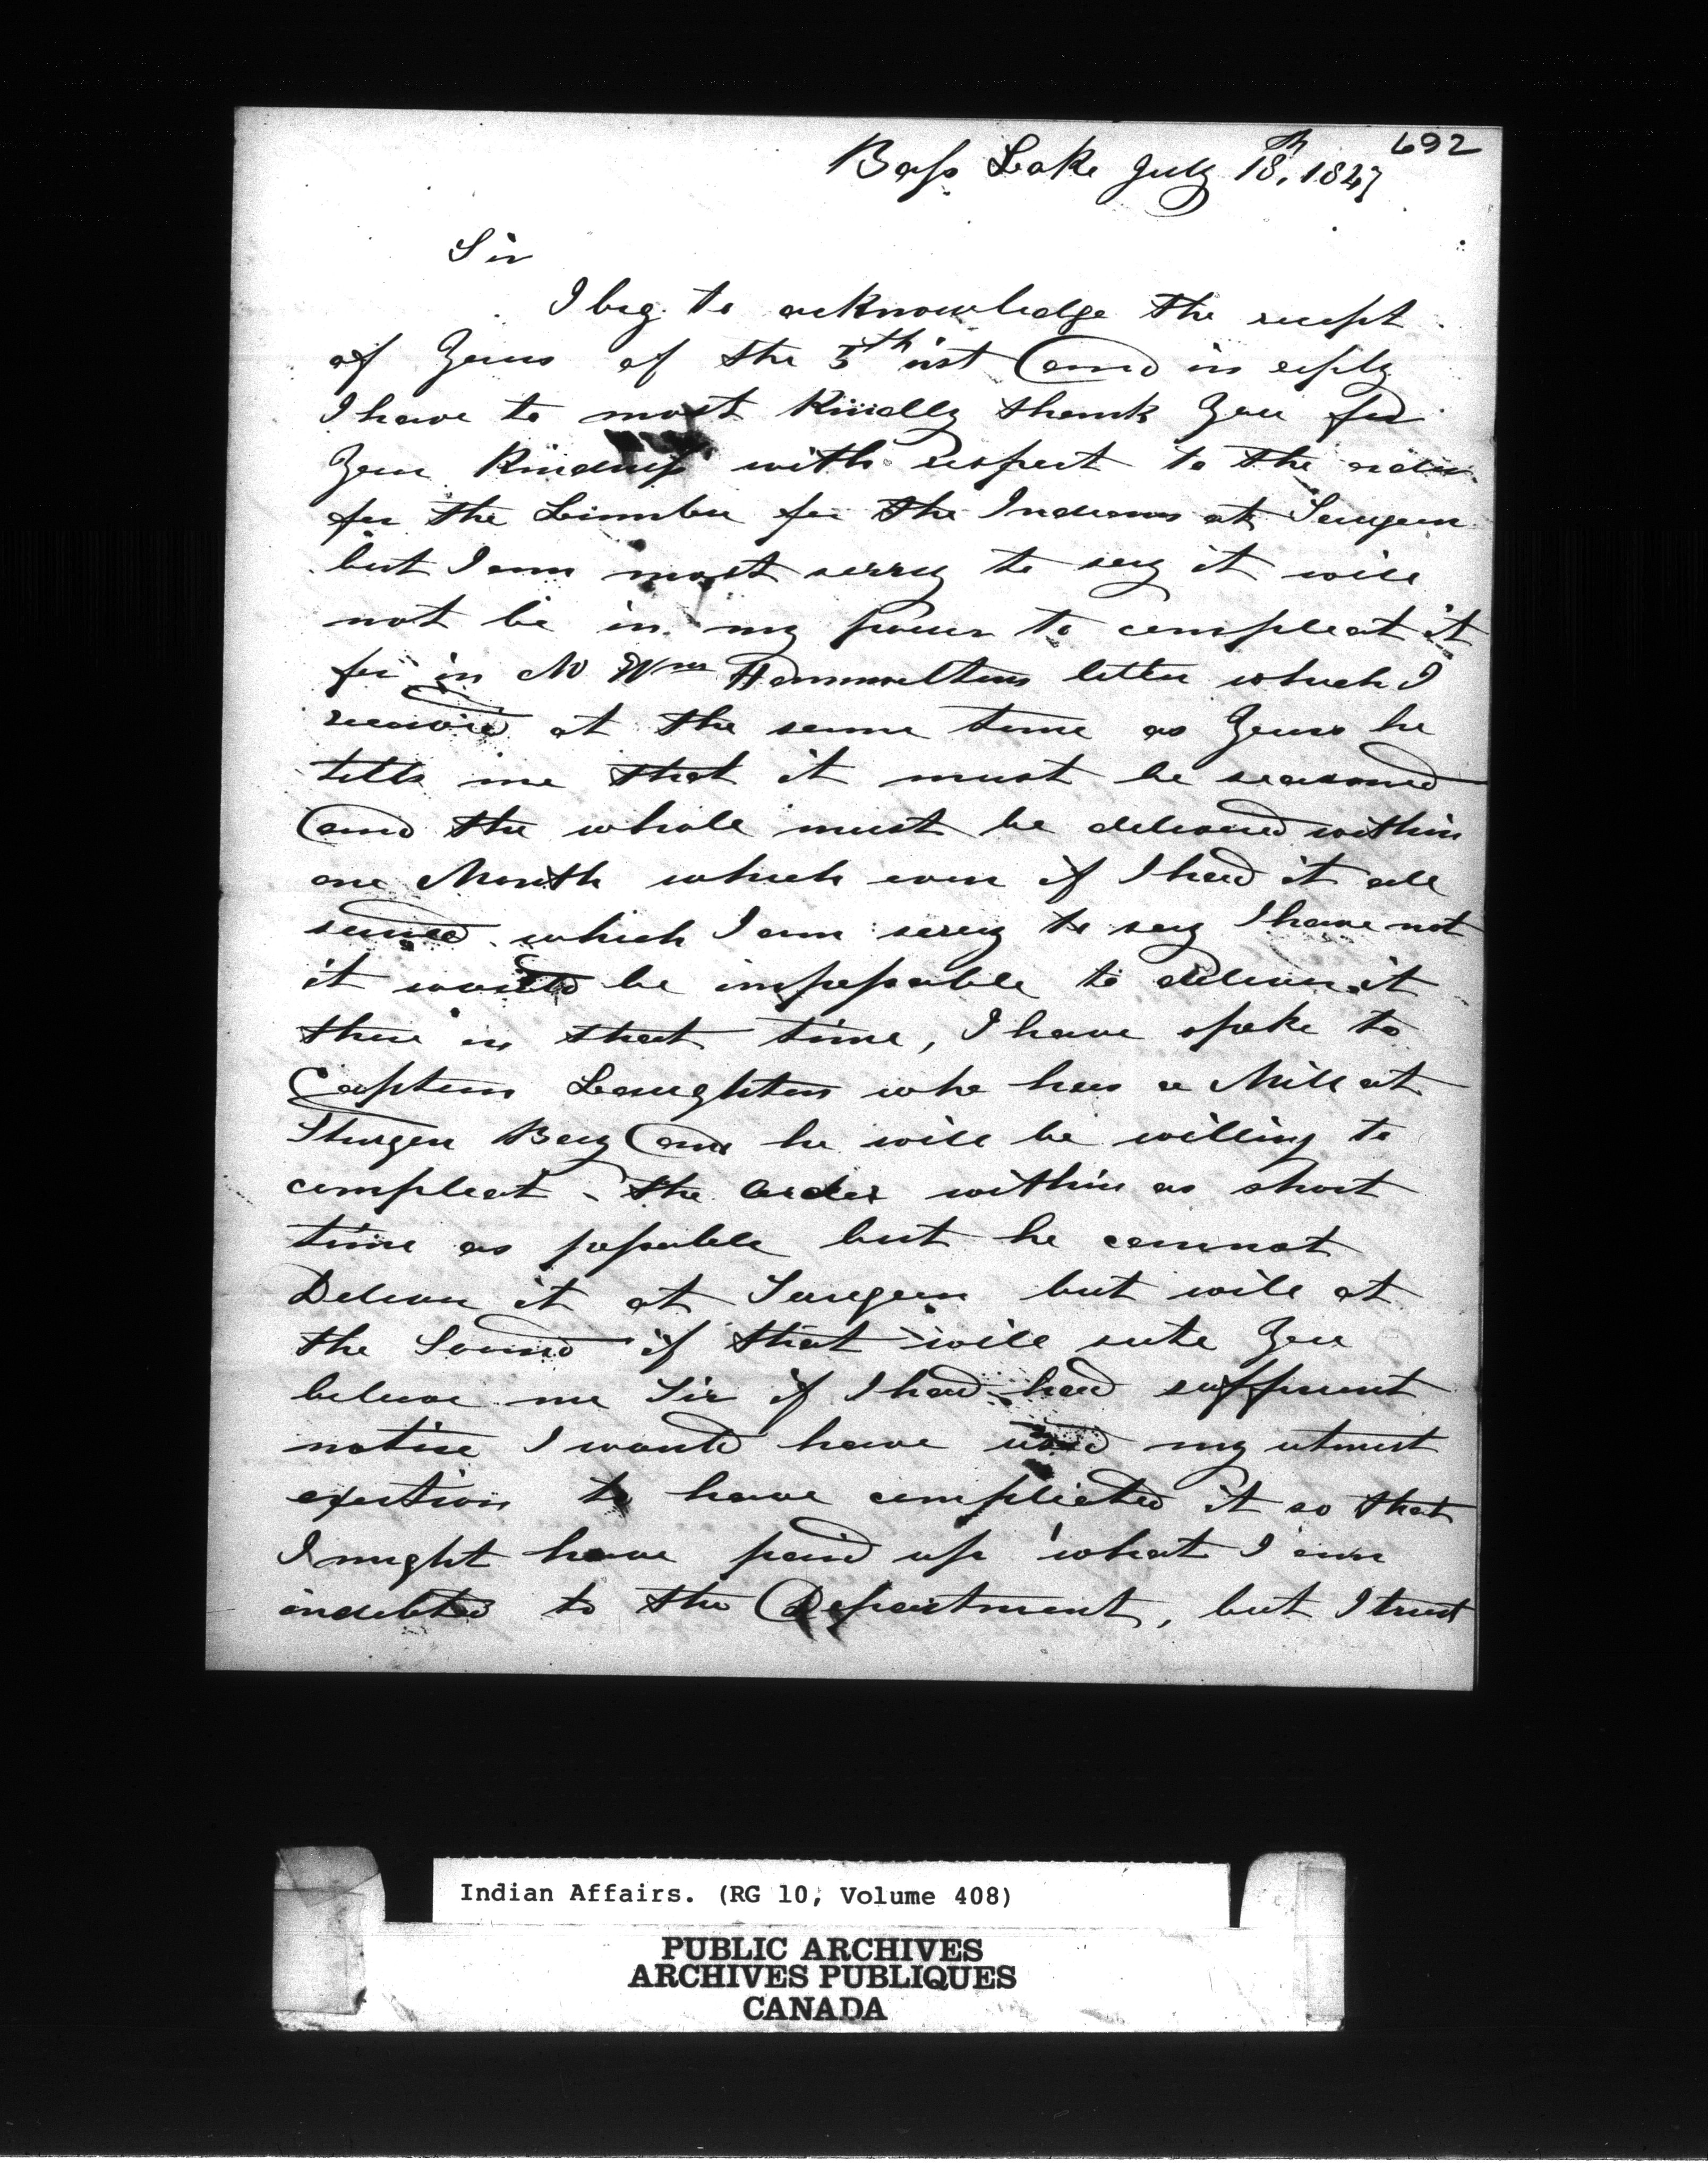 692
Bass Lake July 18th, 1847
Sir
I beg to acknowledge the recept
of Yours of the 5th inst and in reply
I have to most Kindly thank You for
Your Kindness with respect to the order
for the Limber for the Indians at Saugeen
but I am most sorry to say it will
not be in my power to compleat it
for in Mr Wm Hammeltons letter which I
received at the same time as Yours he
tells me that it must be seasoned
and the whole must be delivered within
one Month which even if I had it all
which I am sorry to say I have not
it would be impossable to deliver it
there in that time, I have spoke to
Captain Laughton who has a Mill at
Sturgen Bay and he will be willing to
compleat the order within as short
time as possable but he cannot
Deliver it at Saugeen but will at
the Sound if that will sute You
beleive me Sir if I had had sufficient
notice I would have used my utmost
exertion to have complieted it so that
I might have paid up what I am
indebted to the Department, but I trust
Indian Affairs. (RG 10, Volume 408)
PUBLIC ARCHIVES
ARCHIVES PUBLIQUES
CANADA